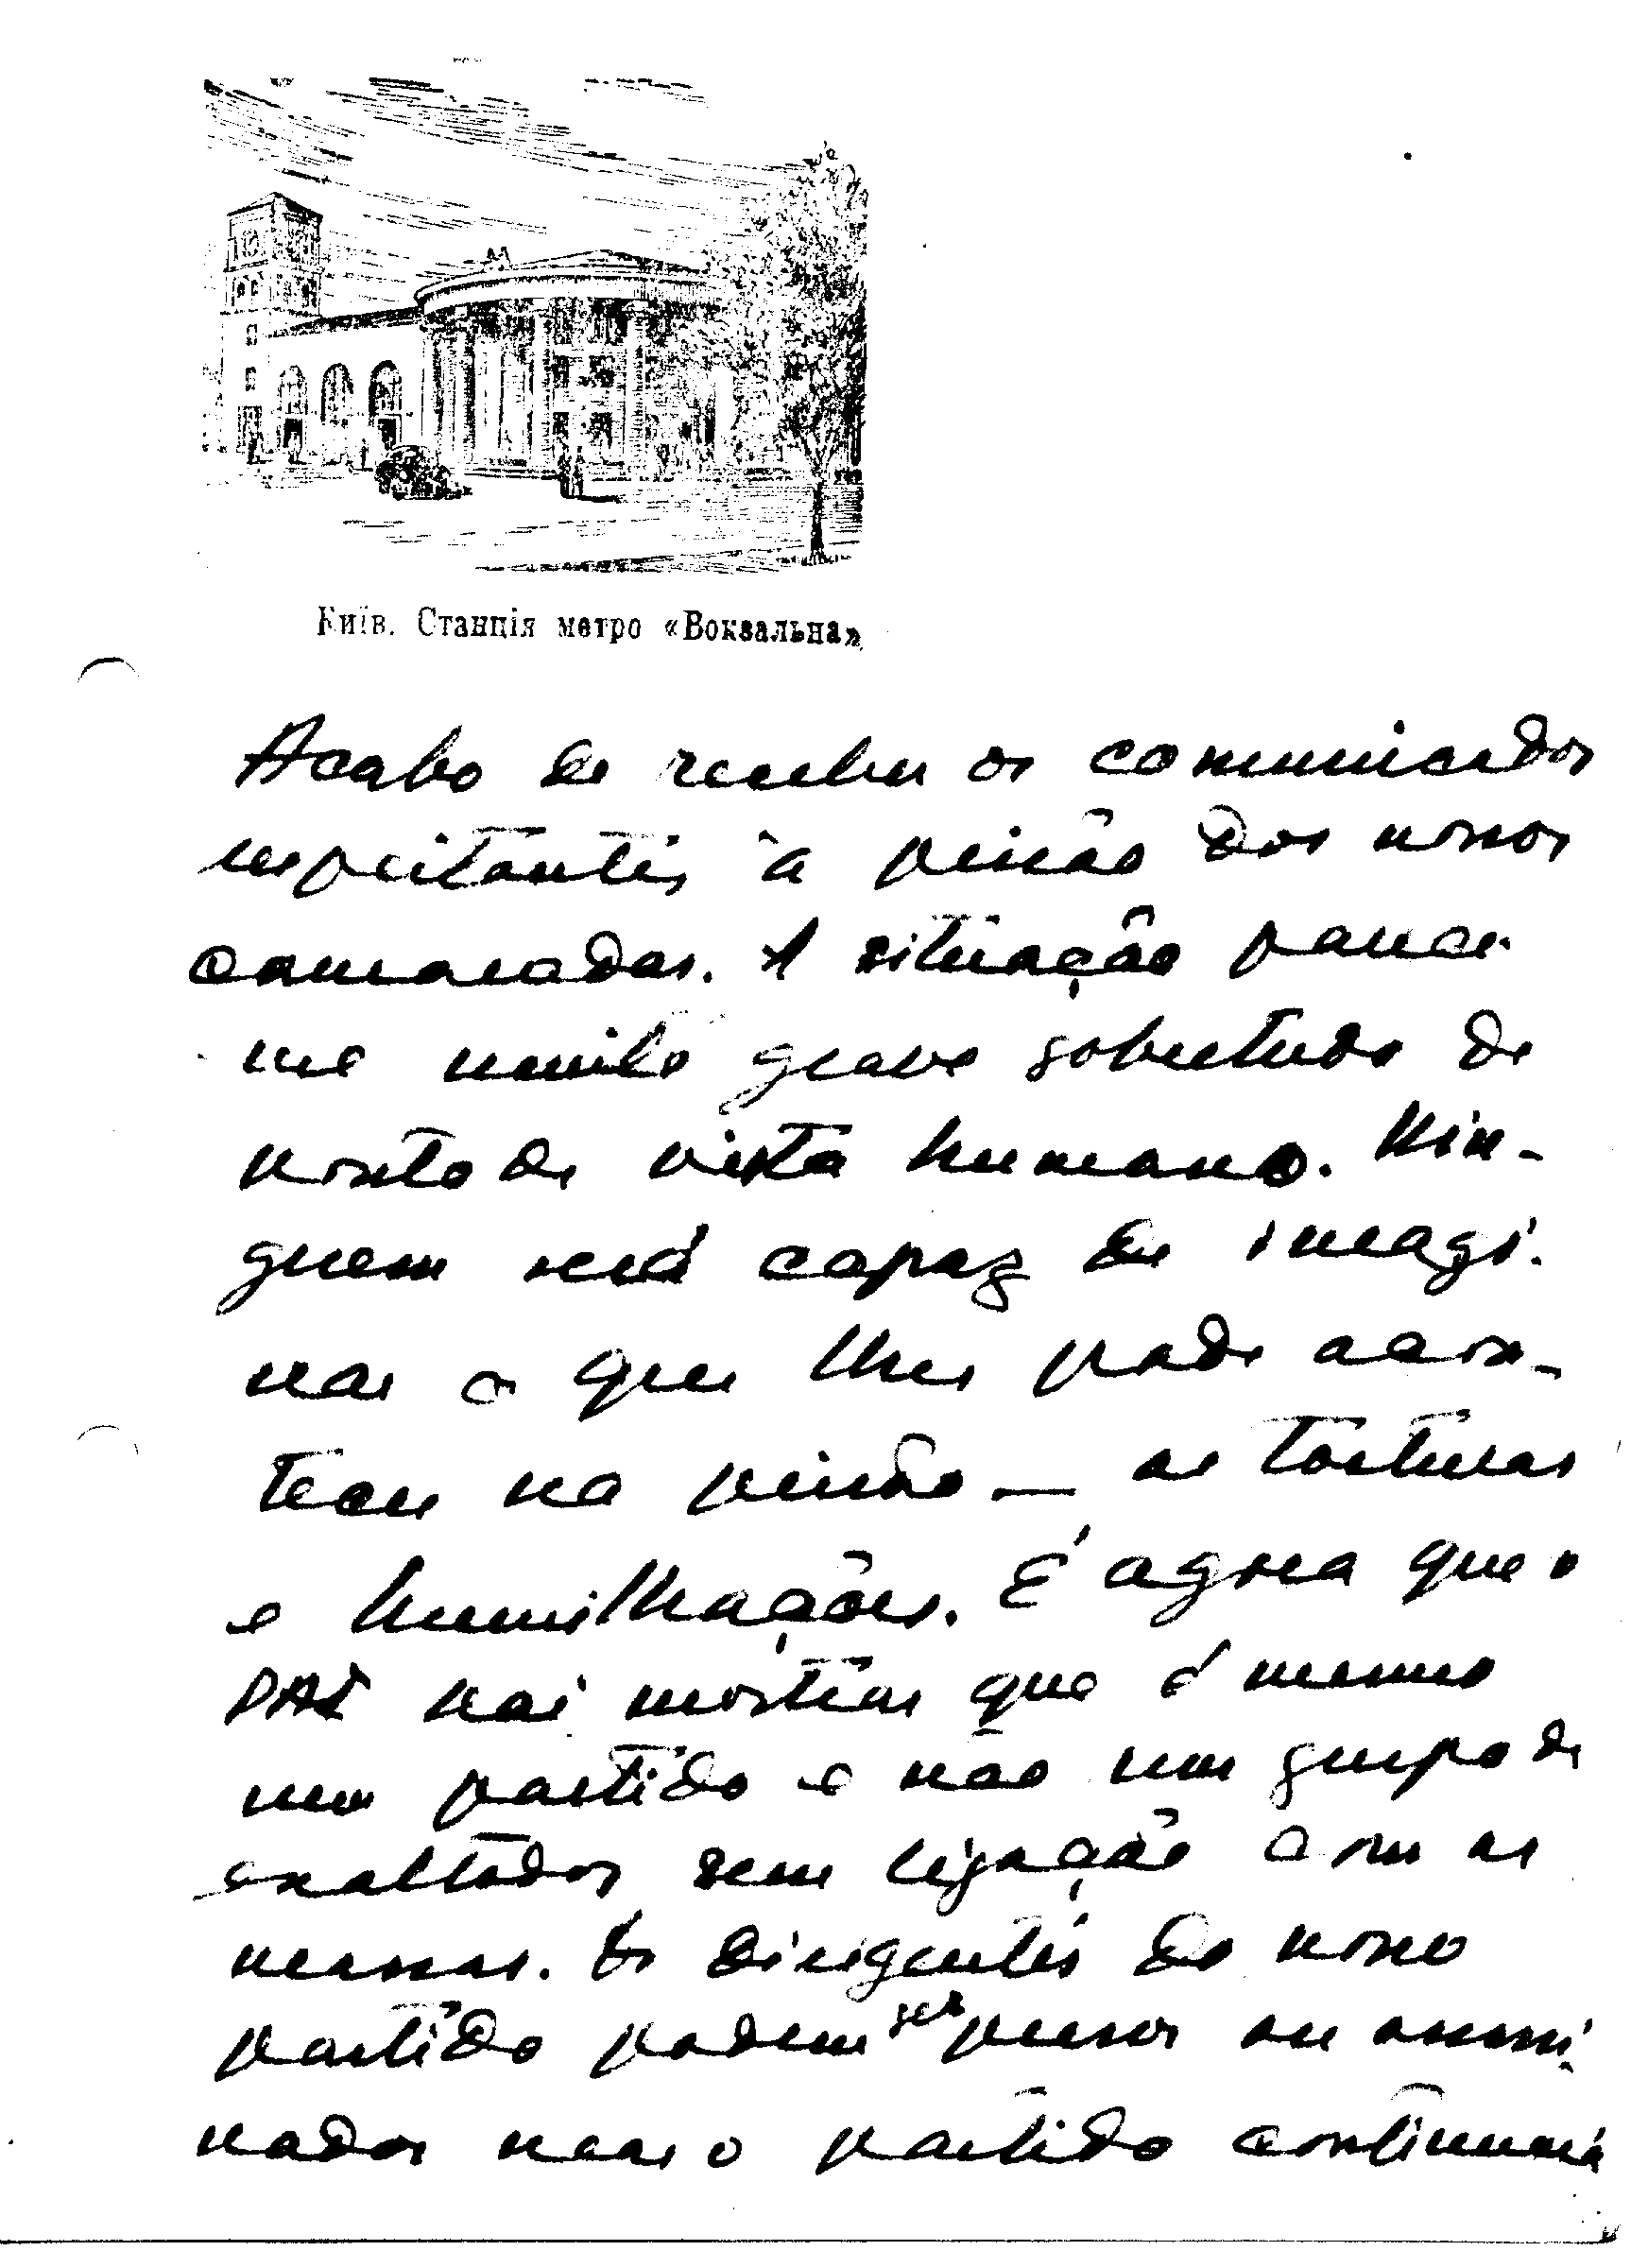 Київ. Станція метро «Вокзальна»
Acabo de receber os comunicados
respeitantes à prisão dos nossos
camaradas. A situação parece-
me muito grave sobretudo do
ponto de vista humano. Nin-
guem será capaz de imagi-
nar o que lhes pode acon-
tecer na prisão — as torturas
e humilhações. É agora que o
PAI vai mostrar que é mesmo
um partido e não um grupo de
exaltados sem ligação com as
massas. Os dirigentes do nosso
partido podem ser presos ou assassi-
nados mas o partido continuará